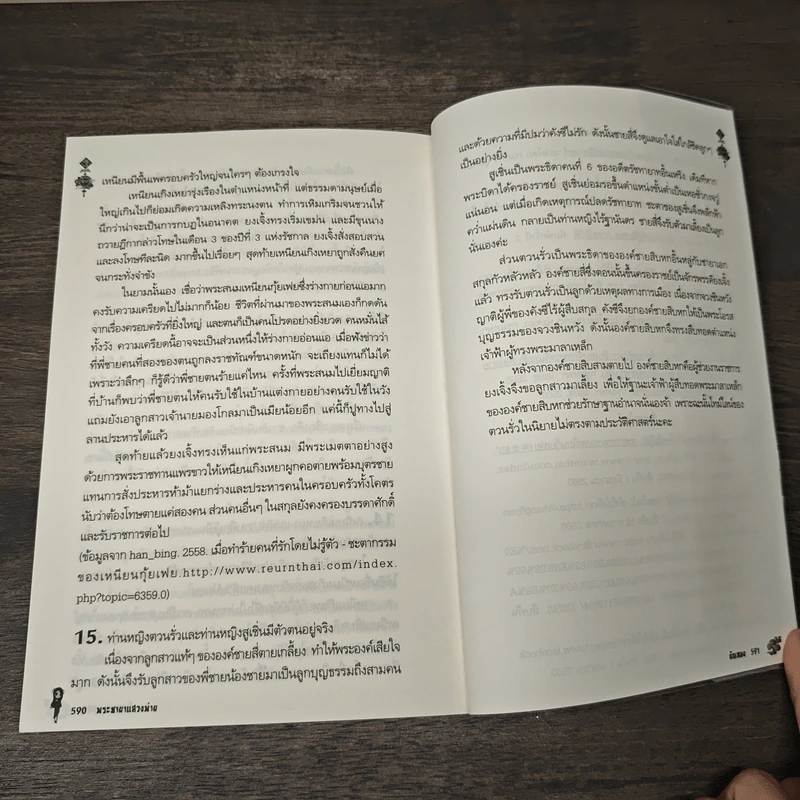 เหนียนมีพื้นเพครอบครัวใหญ่จนใครๆ ต้องเกรงใจ
เหนียนเกิงเหยารุ่งเรืองในตำแหน่งหน้าที่ แต่ธรรมดามนุษย์เมื่อ
ใหญ่เกินไปก็ย่อมเกิดความเหลิงทระนงตน ทำการเหิมเกริมจนชวนให้
นึกว่าน่าจะเป็นการกบฏในอนาคต ยงเจิ้งทรงเริ่มเขม่น และมีขุนนาง
ถวายฎีกากล่าวโทษในเดือน 3 ของปีที่ 3 แห่งรัชกาล ยงเจิ้งสั่งสอบสวน
และลงโทษทีละนิด มากขึ้นไปเรื่อยๆ สุดท้ายเหนียนเกิงเหยาถูกสั่งคืนยศ
จนกระทั่งจำขัง
ในยามนั้นเอง เชื่อว่าพระสนมเหนียนกุ้ยเฟยซึ่งร่างกายก่อนแอมาก
คงรับความเครียดไปไม่มากก็น้อย ชีวิตที่ผ่านมาของพระสนมเองก็กดดัน
จากเรื่องครอบครัวที่ยิ่งใหญ่ และตนก็เป็นคนโปรดอย่างยิ่งยวด คนหมั่นไส้
ทั้งวัง ความเครียดนี้อาจจะเป็นส่วนหนึ่งให้ร่างกายอ่อนแอ เมื่อฟังข่าวว่า
ที่พี่ชายคนที่สองของตนถูกลงราชทัณฑ์ขนาดหนัก จะเถียงแทนก็ไม่ได้
เพราะว่าลึกๆ ก็รู้ดีว่าพี่ชายตนร้ายแค่ไหน ครั้งที่พระสนมไปเยี่ยมญาติ
ที่บ้านก็พบว่าพี่ชายตนให้คนรับใช้ในบ้านแต่งกายอย่างคนรับใช้ในวัง
แถมยังเอาลูกสาวเจ้านายมองโกลมาเป็นเมียน้อยอีก แค่นี้ก็ปูทางไปสู่
ลานประหารได้แล้ว
สุดท้ายแล้วยงเจิ้งทรงเห็นแก่พระสนม มีพระเมตตาอย่างสูง
ด้วยการพระราชทานแพรขาวให้เหนียนเกิงเหยาผูกคอตายพร้อมบุตรชาย
แทนการสั่งประหารห้าม้าแยกร่างและประหารคนในครอบครัวทั้งโคตร
นับว่าต้องโทษตายแค่สองคน ส่วนคนอื่นๆ ในสกุลยังคงครองบรรดาศักดิ์
และรับราชการต่อไป
(ข้อมูลจาก han_bing. 2558. เมื่อทำร้ายคนที่รักโดยไม่รู้ตัว - ชะตากรรม
ของเหนียนกุ้ยเฟย.http://www.reurnthai.com/index.
php?topic=6359.0)
15. ท่านหญิงตวนรั่วและท่านหญิงสูเชิ่นมีตัวตนอยู่จริง
เนื่องจากลูกสาวแท้ๆ ขององค์ชายสี่ตายเกลี้ยง ทำให้พระองค์เสียใจ
มาก ดังนั้นจึงรับลูกสาวของพี่ชายน้องชายมาเป็นลูกบุญธรรมถึงสามคน
590 พระชายาแสวงพ่าย
และด้วยความที่มีปมว่าคังซีไม่รัก ดังนั้นชายสี่จึงดูแลเอาใจใส่ใกล้ชิดลูกๆ
เป็นอย่างยิ่ง
สูเชิ่นเป็นพระธิดาคนที่ 6 ของอดีตรัชทายาทอิ้นเหริง เดิมทีหาก
พระบิดาได้ครองราชย์ สูเชิ่นย่อมรอขึ้นตำแหน่งชั้นต่ำเป็นเหอซั่วกงจู่
แน่นอน แต่เมื่อเกิดเหตุการณ์ปลดรัชทายาท ชะตาของสูเชิ่นจึงพลิกฟ้า
คว่ำแผ่นดิน กลายเป็นท่านหญิงไร้ฐานันดร ชายสี่จึงรับตัวมาเลี้ยงเป็นลูก
นั่นเองค่ะ
ส่วนตวนรั่วเป็นพระธิดาขององค์ชายสิบหกอิ้นหลู่กับชายาเอก
สกุลกัวหลัวหลัว องค์ชายสี่ซึ่งตอนนั้นขึ้นครองราชย์เป็นจักรพรรดิยงเจิ้ง
แล้ว ทรงรับตวนรั่วเป็นลูกด้วยเหตุผลทางการเมือง เนื่องจากจวงชินหวัง
ญาติผู้พี่ของคังซีไร้ผู้สืบสกุล คังซีจึงยกองค์ชายสิบหกให้เป็นพระโอรส
บุญธรรมของจวงชินหวัง ดังนั้นองค์ชายสิบหกจึงทรงสืบทอดตำแหน่ง
เจ้าฟ้าผู้ทรงพระมาลาเหล็ก
หลังจากองค์ชายสิบสามตายไป องค์ชายสิบหกคือผู้ช่วยงานราชการ
ยงเจิ้งจึงขอลูกสาวมาเลี้ยง เพื่อให้ฐานะเจ้าฟ้าผู้สืบทอดพระมาลาเหล็ก
ขององค์ชายสิบหกช่วยรักษาฐานอำนาจนั่นเองจ้า เพราะฉะนั้นไทม์ไลน์ของ
ตวนรั่วในนิยายไม่ตรงตามประวัติศาสตร์นะคะ
591